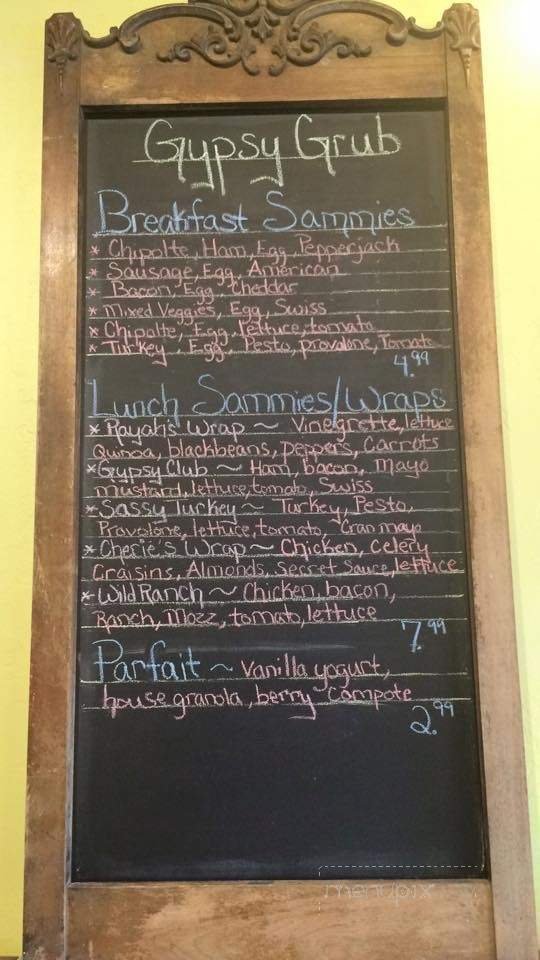 Gypsy Grub
Breakfast Sammies
* Chipolte, Ham, Egg, Pepperjack
* Sausage, Egg, American
* Bacon, Egg, Cheddar
* Mixed Veggies, Egg, Swiss
* Chipolte, Egg, lettuce, tomato
* Turkey, Egg, Pesto, provolone, Tomato
4.99
Lunch Sammies/Wraps
* Rayah's Wrap ~ Vinegrette, lettuce
Quinoa, blackbeans, peppers, Carrots
* Gypsy Club ~ Ham, bacon, Mayo
mustard, lettuce, tomato, Swiss
* Sassy Turkey ~ Turkey, Pesto,
Provolone, lettuce, tomato, Cran mayo
* Cherie's Wrap ~ Chicken, Celery
Craisins, Almonds, Secret Sauce, lettuce
* Wild Ranch ~ Chicken, bacon,
Ranch, Mozz, tomato, lettuce
7.99
Parfait ~ Vanilla yogurt,
house granola, berry compote
2.99
menupix